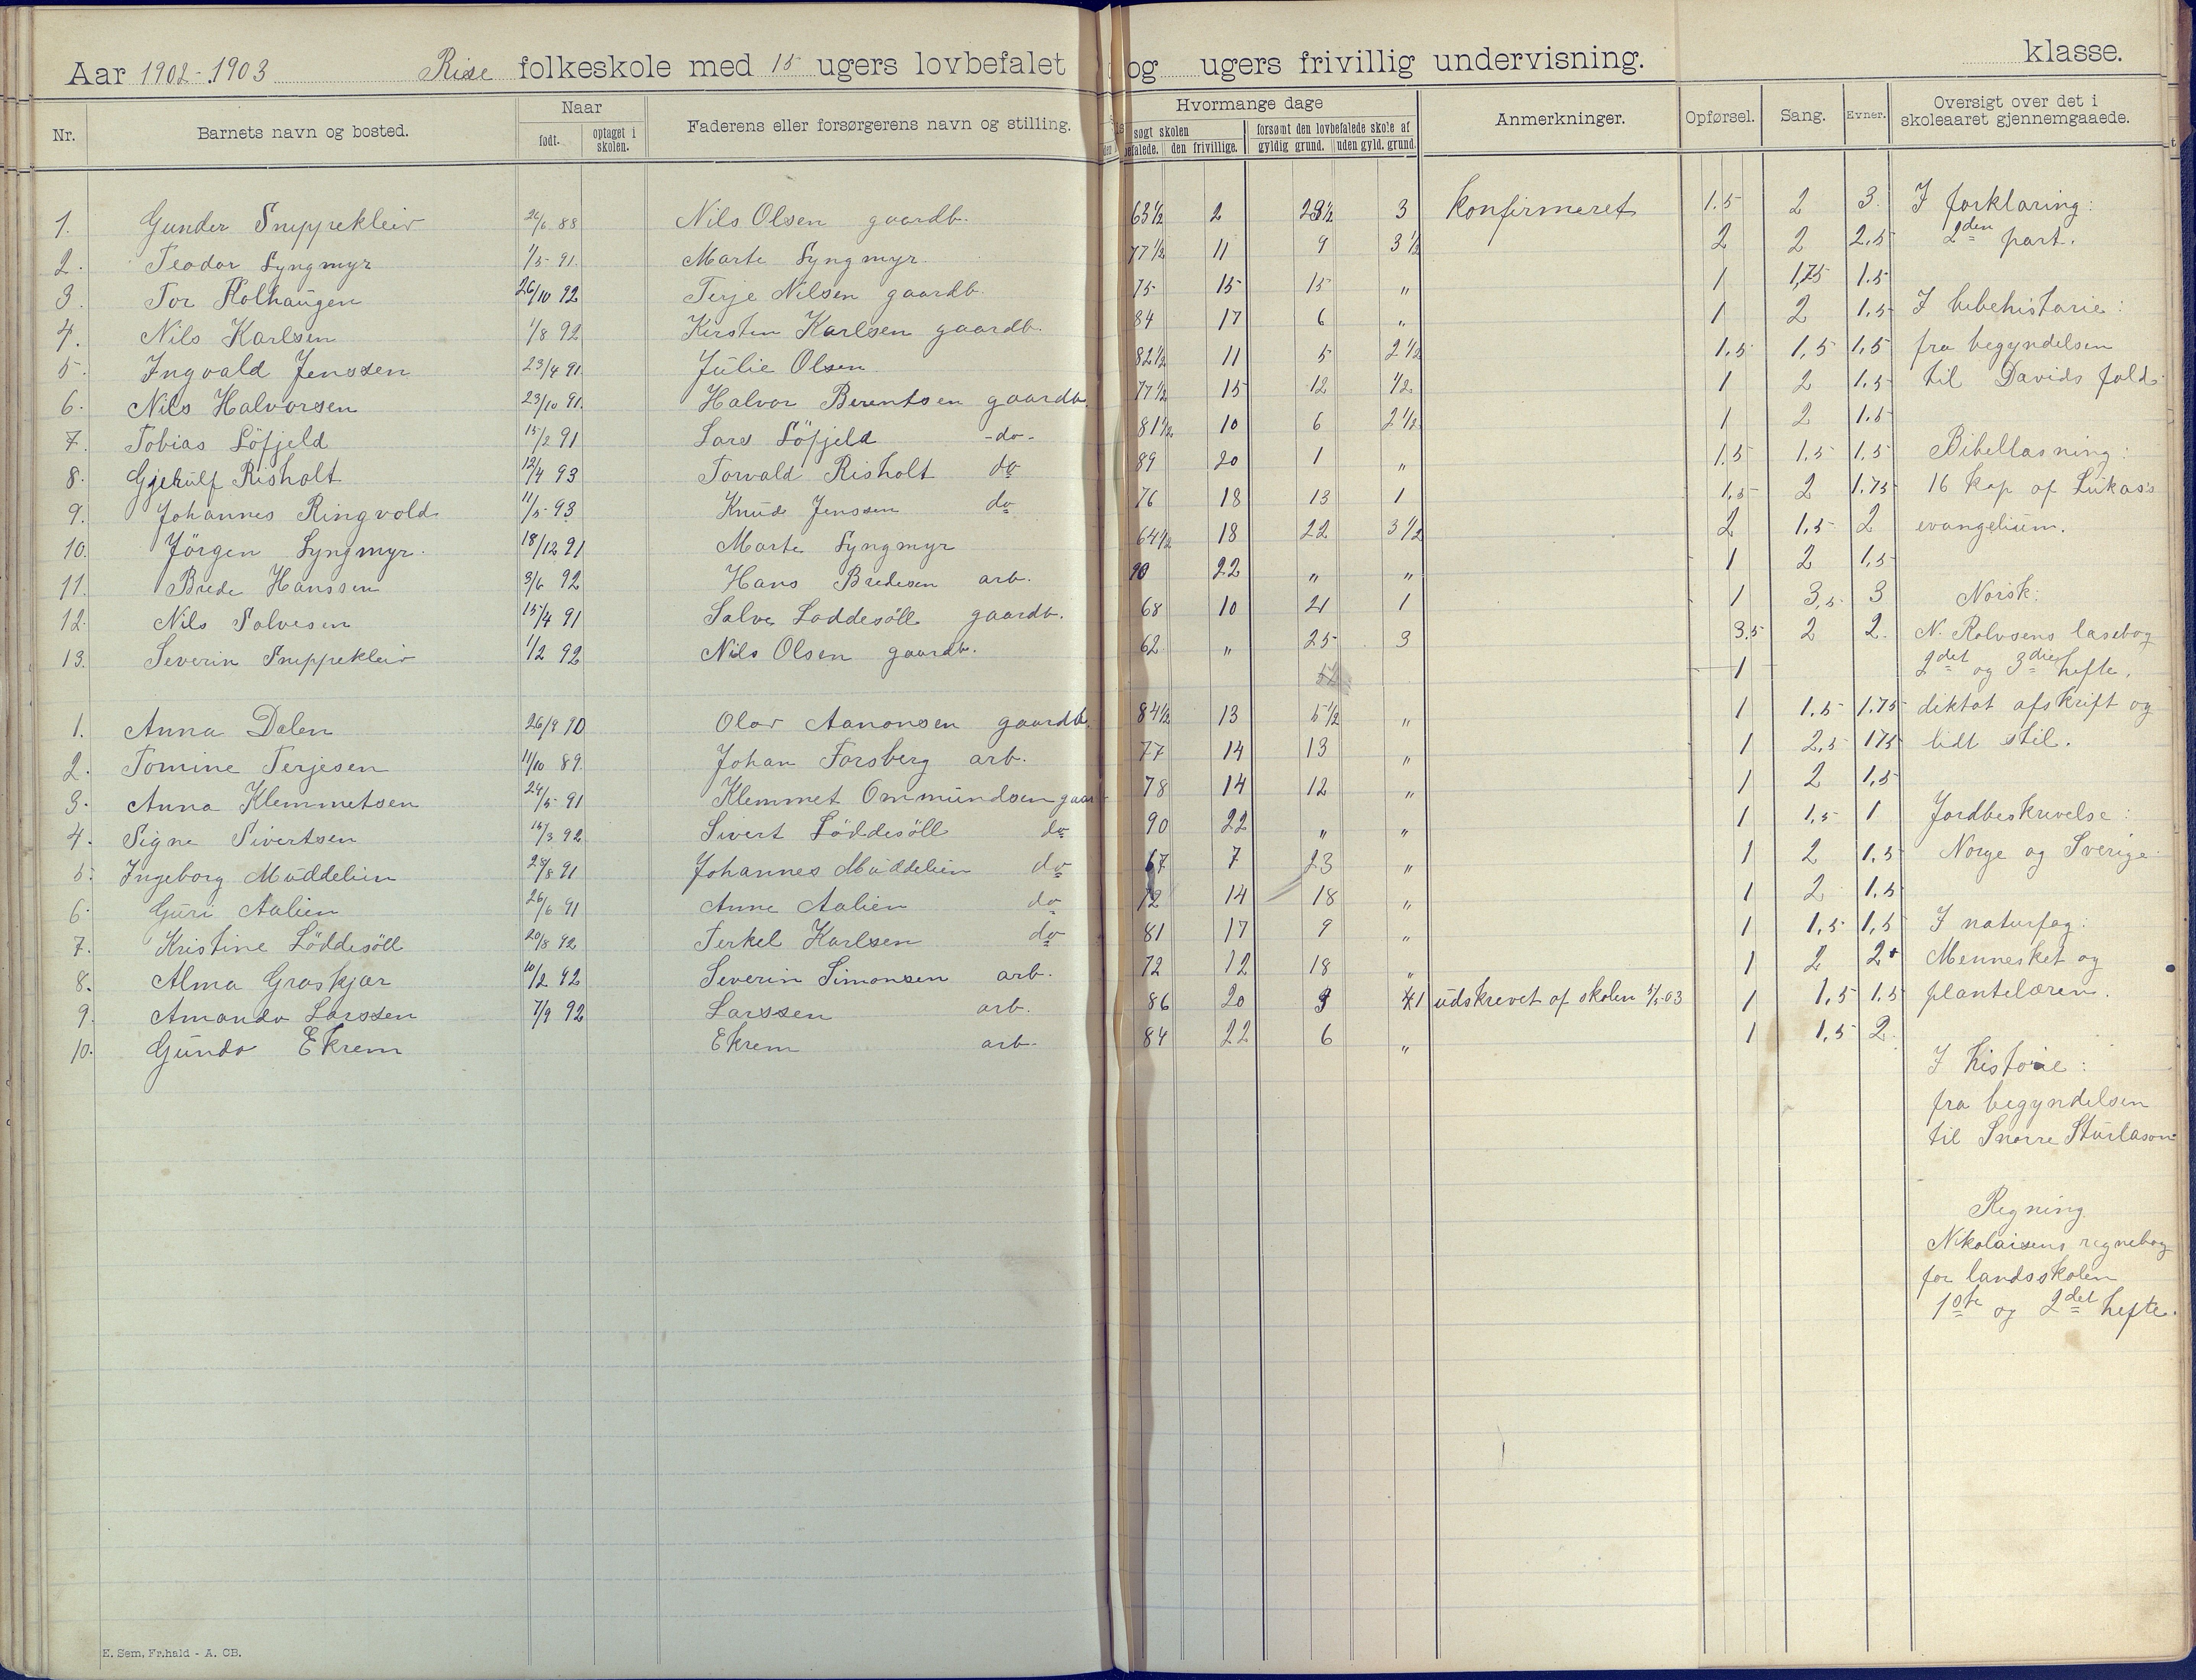 Aar 1902-1903 Rise folkeskole med 15 ugers lovbefalet og ugers frivillig undervisning. klasse.
Nr. Barnets navn og bosted. Naar født. optaget i skolen. Faderens eller forsørgerens navn og stilling. Hvormange dage søgt skolen befalede. den frivillige. forsømt den lovbefalede skole af gyldig grund. uden gyld. grund. Anmerkninger. Opførsel. Sang. Evner. Oversigt over det i skoleaaret gjennemgaaede.
1. Gunder Snippekleiv 26/6 88 Nils Olsen gaardb. 63 1/2 2 3 konfirmeret 1.5 2 3. I forklaring:
2. Teodor Lyngmyr 1/5 91. Marte Lyngmyr. 77 1/2 11 9 3 1/2 2 2 2,5 2den part.
3. Tor Kolhaugen 26/10 92 Terje Nilsen gaardb. 75 15 15 " 1 1,75 1.5
4. Nils Karlsen 1/8 92 Kirsten Karlsen gaardb. 84 17 6 " 1 2 1.5 I bibehistorie:
5. Ingvald Jenssen 23/4 91. Julie Olsen 82 1/2 11 5 2 1/2 1,5 1,5 1,5 fra begyndelsen
6. Nils Halvorsen 23/10 91. Halvor Berentsen gaardb. 77 1/2 15 12 1/2 1 2 1.5 til Davids fald.
7. Tobias Löfjeld 15/2 91 Lars Löfjeld -do- 81 1/2 10 6 2 1/2 1 2 1.5
8. Gjehulf Risholt 12/4 93 Torvald Risholt do 89 20 1 " 1.5 1,5 1,5 Bibellæsning:
9. Johannes Ringvold 11/5 93 Knud Jenssen do 76 18 13 1 1,5 2 1.75 16 kap af Lukas's
10. Jörgen Lyngmyr. 18/12 91 Marte Lyngmyr 64 1/2 18 22 3 1/2 2 1,5 2 evangelium.
11. Brede Hanssen 3/6 92 Hans Bredesen arb. 90 22 " " 1 2 1,5
12. Nils Salvesen 15/4 91 Salve Loddesöll gaardb. 68 10 21 1 1 3,5 3 Norsk:
13. Severin Snippekleiv 1/2 92 Nils Olsen gaardb. 62 " 25 3 3.5 2 2. N. Rolvsens læsebog
1 2det og 3die hefte.
1. Anna Dalen 26/9 90 Olav Aanonsen gaardb. 84 1/2 13 5 1/2 " 1 1.5 1.75 diktat afskrift og
2. Tomine Terjesen 11/10 89. Johan Forsberg arb. 77 14 13 " 1 2,5 175 lidt stil.
3. Anna Klemmetsen 24/5 91 Klemmet Ommundsen gaar 78 14 12 " 1 2 1,5
4. Signe Sivertsen 15/3 92 Sivert Löddesöll do 90 22 " " 1 1,5 1 Jordbeskrivelse:
5. Ingeborg Muddelien 28/8 91 Johannes Muddelien do 67 7 23 " 1 2 1,5 Norge og Sverige
6. Guri Aalien 26/6 91 Anne Aalien do 72 14 18 " 1 2 1.5
7. Kristine Löddesöll 20/8 92 Terkel Karlsen do 81 17 9 " 1 1,5 1,5 I naturfag:
8. Alma Graskjær 10/2 92 Severin Simonsen arb. 72 12 18 " 1 2 2+ Mennesket og
9. Amanda Larssen 7/9 92 Larssen arb. 86 20 3 1 udskrevet af skolen 5/5-03 1 1,5 1.5 plantelæren.
10. Gunda Ekrem Ekrem arb. 84 22 6 " 1 1,5 2.
I historie:
fra begyndelsen
til Snorre Sturlason
Regning
Nikolaisens regnebog
for landsskolen
1ste og 2det hefte.
E. Sem, Fr.hald - A. CB.